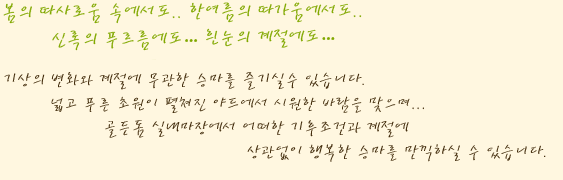 봄의 따사로움 속에서도.. 한여름의 따가움에서도..
신록의 푸르름에도... 흰눈의 계절에도...
기상의 변화와 계절에 무관한 승마를 즐기실수 있습니다.
넓고 푸른 초원이 펼쳐진 야드에서 시원한 바람을 맞으며...
골든돔 실내마장에서 어떠한 기후조건과 계절에
상관없이 행복한 승마를 만끽하실 수 있습니다.